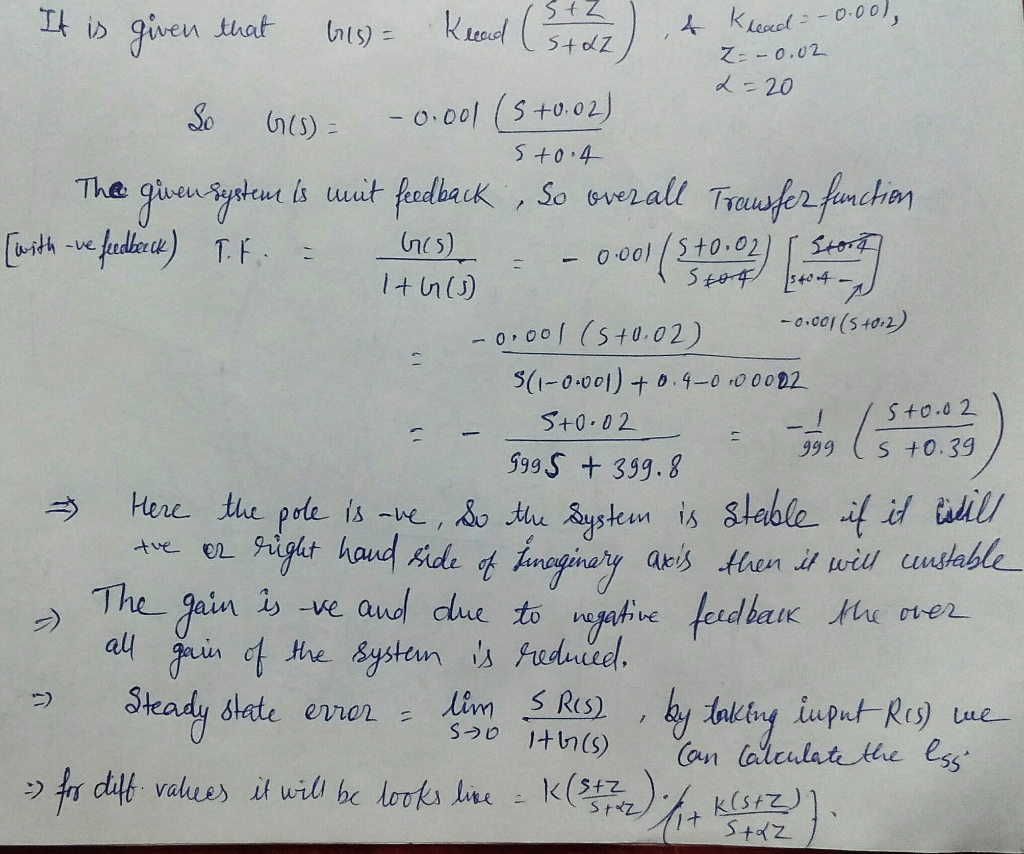 It is given that G(s) = Klead (S+Z / S+αZ), & Klead = -0.001,
Z = -0.02
α = 20
So G(s) = -0.001 (S+0.02) / S+0.4
The given system is unit feedback, So overall Transfer function
[with -ve feedback) T.F. = G(s) / 1+G(s) = -0.001 (S+0.02 / S+0.4) [S+0.4 / S+0.4 -]
-0.001(S+0.2)
= -0.001 (S+0.02) / S(1-0.001) + 0.4-0.00002
= - S+0.02 / 999S + 399.8 = -1/999 (S+0.02 / S+0.39)
⇒ Here the pole is -ve, So the System is Stable if it will
+ve or right hand side of Imaginary axis then it will unstable
⇒ The gain is -ve and due to negative feedback the over
all gain of the system is reduced.
⇒ Steady state error = lim S→0 S R(s) / 1+G(s), by taking input R(s) we
can calculate the ess.
⇒ for diff. values it will be looks like = K(S+Z / S+αZ) / {1+ K(S+Z) / S+αZ}.